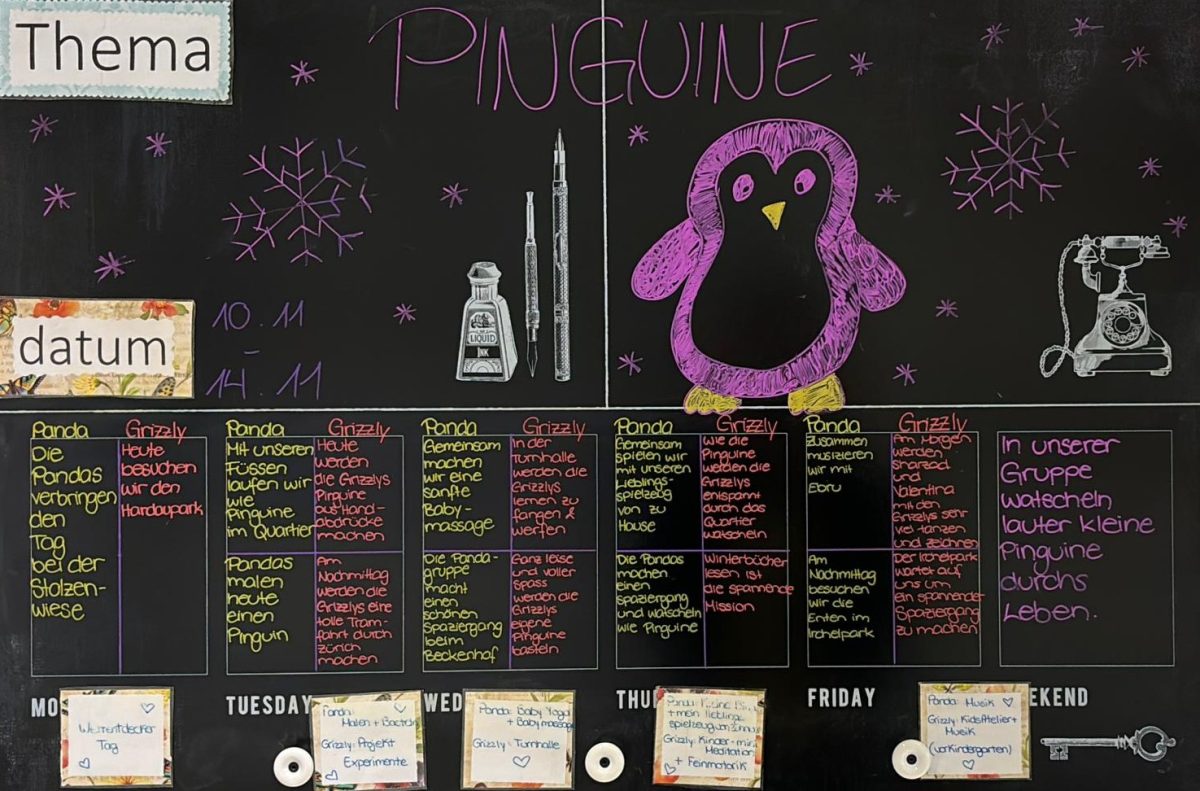 Thema
PINGUINE
datum
10.11
–
14.11
LIQUID
INK
Panda
Die
Pandas
verbringen
den
Tag
bei der
Stolzen-
wiese
Grizzly
Heute
besuchen
wir den
Hardaupark
Panda
Mit unseren
Füssen
laufen wir
wie
Pinguine
im Quartier
Pandas
malen
heute
einen
Pinguin
Grizzly
Heute
werden
die Grizzlys
Pinguine
aus Hand-
abdrücke
machen
Am
Nachmittag
werden die
Grizzlys eine
tolle Tram-
fahrt durch
Zürich
machen
Panda
Gemeinsam
machen
wir eine
sanfte
Baby-
massage
Die Panda-
gruppe
macht
einen
schönen
Spaziergang
beim
Beckenhof
Grizzly
In der
Turnhalle
werden die
Grizzlys
lernen zu
fangen &
werfen
Ganz leise
und voller
Spass
werden die
Grizzlys
eigene
Pinguine
basteln
Panda
Gemeinsam
spielen wir
mit unseren
Lieblings-
spielzeug
von zu
Hause
Die Pandas
machen
einen
spaziergang
und watscheln
wie Pinguine
Grizzly
Wie die
Pinguine
werden die
Grizzlys
entspannt
durch das
Quartier
watscheln
Winterbücher
lesen ist
die spannende
Mission
Panda
Zusammen
musizieren
wir mit
Ebru
Am
Nachmittag
besuchen
wir die
Enten im
Irchelpark
Grizzly
Am Morgen
werden
sharzad
und
Valentina
mit den
Grizzlys sehr
viel tanzen
und zeichnen
Der Irchelpark
wartet auf
uns um
ein spannender
Spaziergang
zu machen
In unserer
Gruppe
watscheln
lauter kleine
Pinguine
durchs
Leben.
MO
TUESDAY
WED
THU
FRIDAY
EKEND
Weltentdecker
Tag
Panda:
Malen + Basteln
Grizzly: Projekt
Experimente
Panda: Baby Yoga
+ Baby massage
Grizzly: Turnhalle
Panda:
+ mein lieblings
spielzeug von zuhause
Grizzly: Kinder-
Meditation
+ Feinmotorik
Panda: Musik
Grizzly: KidsAtelier+
Musik
(vorkindergarten)